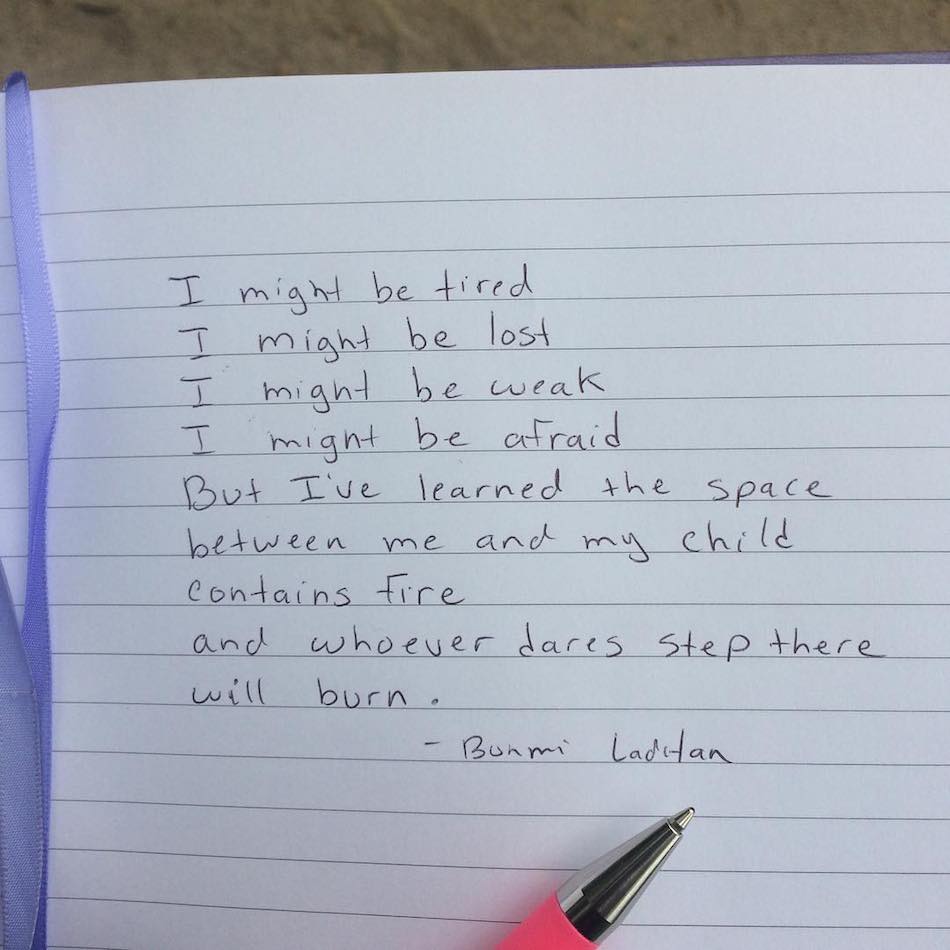 I might be tired
I might be lost
I might be weak
I might be afraid
But I've learned the space
between me and my child
contains fire
and whoever dares step there
will burn.
- Bunmi Laditan